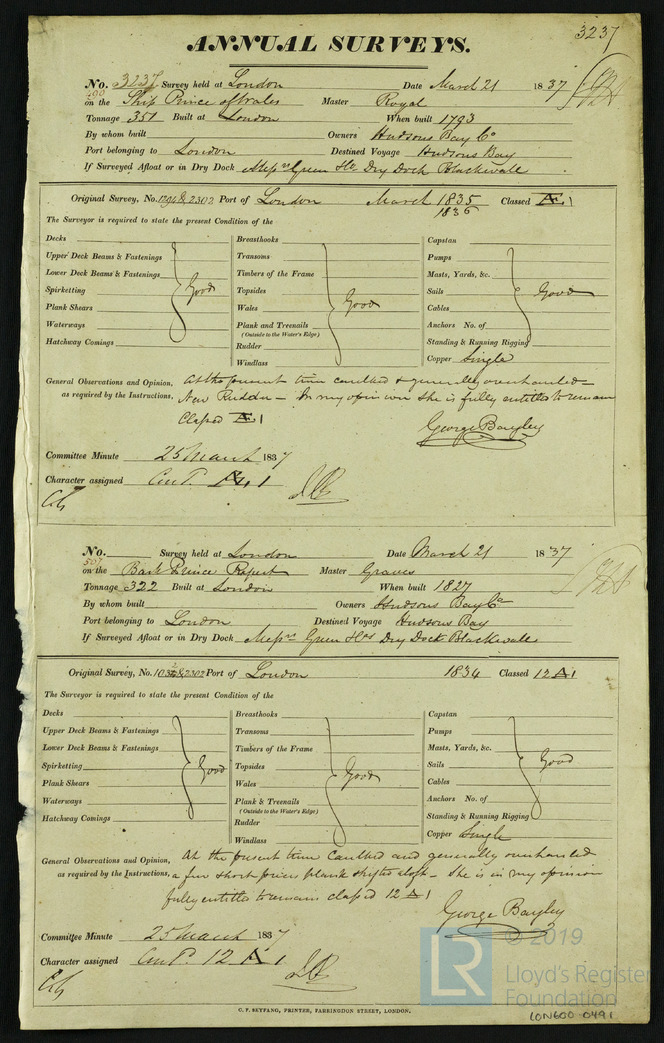 3237
ANNUAL SURVEYS.
No. 3237 Survey held at London Date March 21 1837
on the Ship Prince of Wales Master Royal
Tonnage 351 Built at London When built 1793
By whom built Owners Hudsons Bay Co
Port belonging to London Destined Voyage Hudsons Bay
If Surveyed Afloat or in Dry Dock Messrs Green &c Dry Dock Blackwall
Original Survey, No. & 2302 Port of London March 1835 Classed Æ 1
1836
The Surveyor is required to state the present Condition of the
Decks Breasthooks Capstan
Upper Deck Beams & Fastenings Transoms Pumps
Lower Deck Beams & Fastenings Timbers of the Frame Masts, Yards, &c.
Spirketting Good Topsides Sails Good
Plank Shears Wales Good Cables
Waterways Plank and Treenails Anchors No. of
(Outside to the Water's Edge)
Hatchway Comings Rudder Standing & Running Rigging
Windlass Copper Single
General Observations and Opinion, At the present time caulked & generally overhauled
as required by the Instructions. New Rudder - In my opinion she is fully entitled to remain
Classed Æ 1
George Bayley
Committee Minute 25 March 1837
Character assigned Æ 1
No. Survey held at London Date March 21 1837
507
on the Bark Prince Rupert Master Graves
Tonnage 322 Built at London When built 1827
By whom built Owners Hudsons Bay Co
Port belonging to London Destined Voyage Hudsons Bay
If Surveyed Afloat or in Dry Dock Messrs Green &c Dry Dock Blackwall
Original Survey, No. & 2302 Port of London 1834 Classed 12 A 1
The Surveyor is required to state the present Condition of the
Decks Breasthooks Capstan
Upper Deck Beams & Fastenings Transoms Pumps
Lower Deck Beams & Fastenings Timbers of the Frame Masts, Yards, &c.
Spirketting Good Topsides Good Sails Good
Plank Shears Wales Cables
Waterways Plank & Treenails Anchors No. of
(Outside to the Water's Edge)
Hatchway Comings Rudder Standing & Running Rigging
Windlass Copper Single
General Observations and Opinion, At the present time caulked and generally overhauled
as required by the Instructions, a few short pieces plank shifted aloft - she is in my opinion
fully entitled to remain classed 12 A 1
George Bayley
Committee Minute 25 March 1837
Character assigned 12 A 1
C. F. SEYFANG, PRINTER, FARRINGDON STREET, LONDON.
LR © 2019
Lloyd's Register
Foundation
LON600-0491